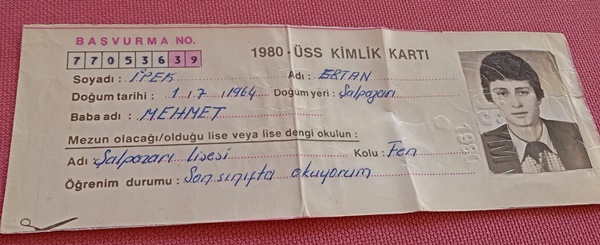 BAŞVURMA NO.
7 7 0 5 3 6 3 9
1980 - ÜSS KİMLİK KARTI
Soyadı : İPEK Adı : ERTAN
Doğum tarihi : 1 / 7 / 1964 Doğum yeri : Şalpazarı
Baba adı : MEHMET
Mezun olacağı/olduğu lise veya lise dengi okulun :
Adı Şalpazarı lisesi Kolu : Fen
Öğrenim durumu : Son sınıfta okuyorum
1980